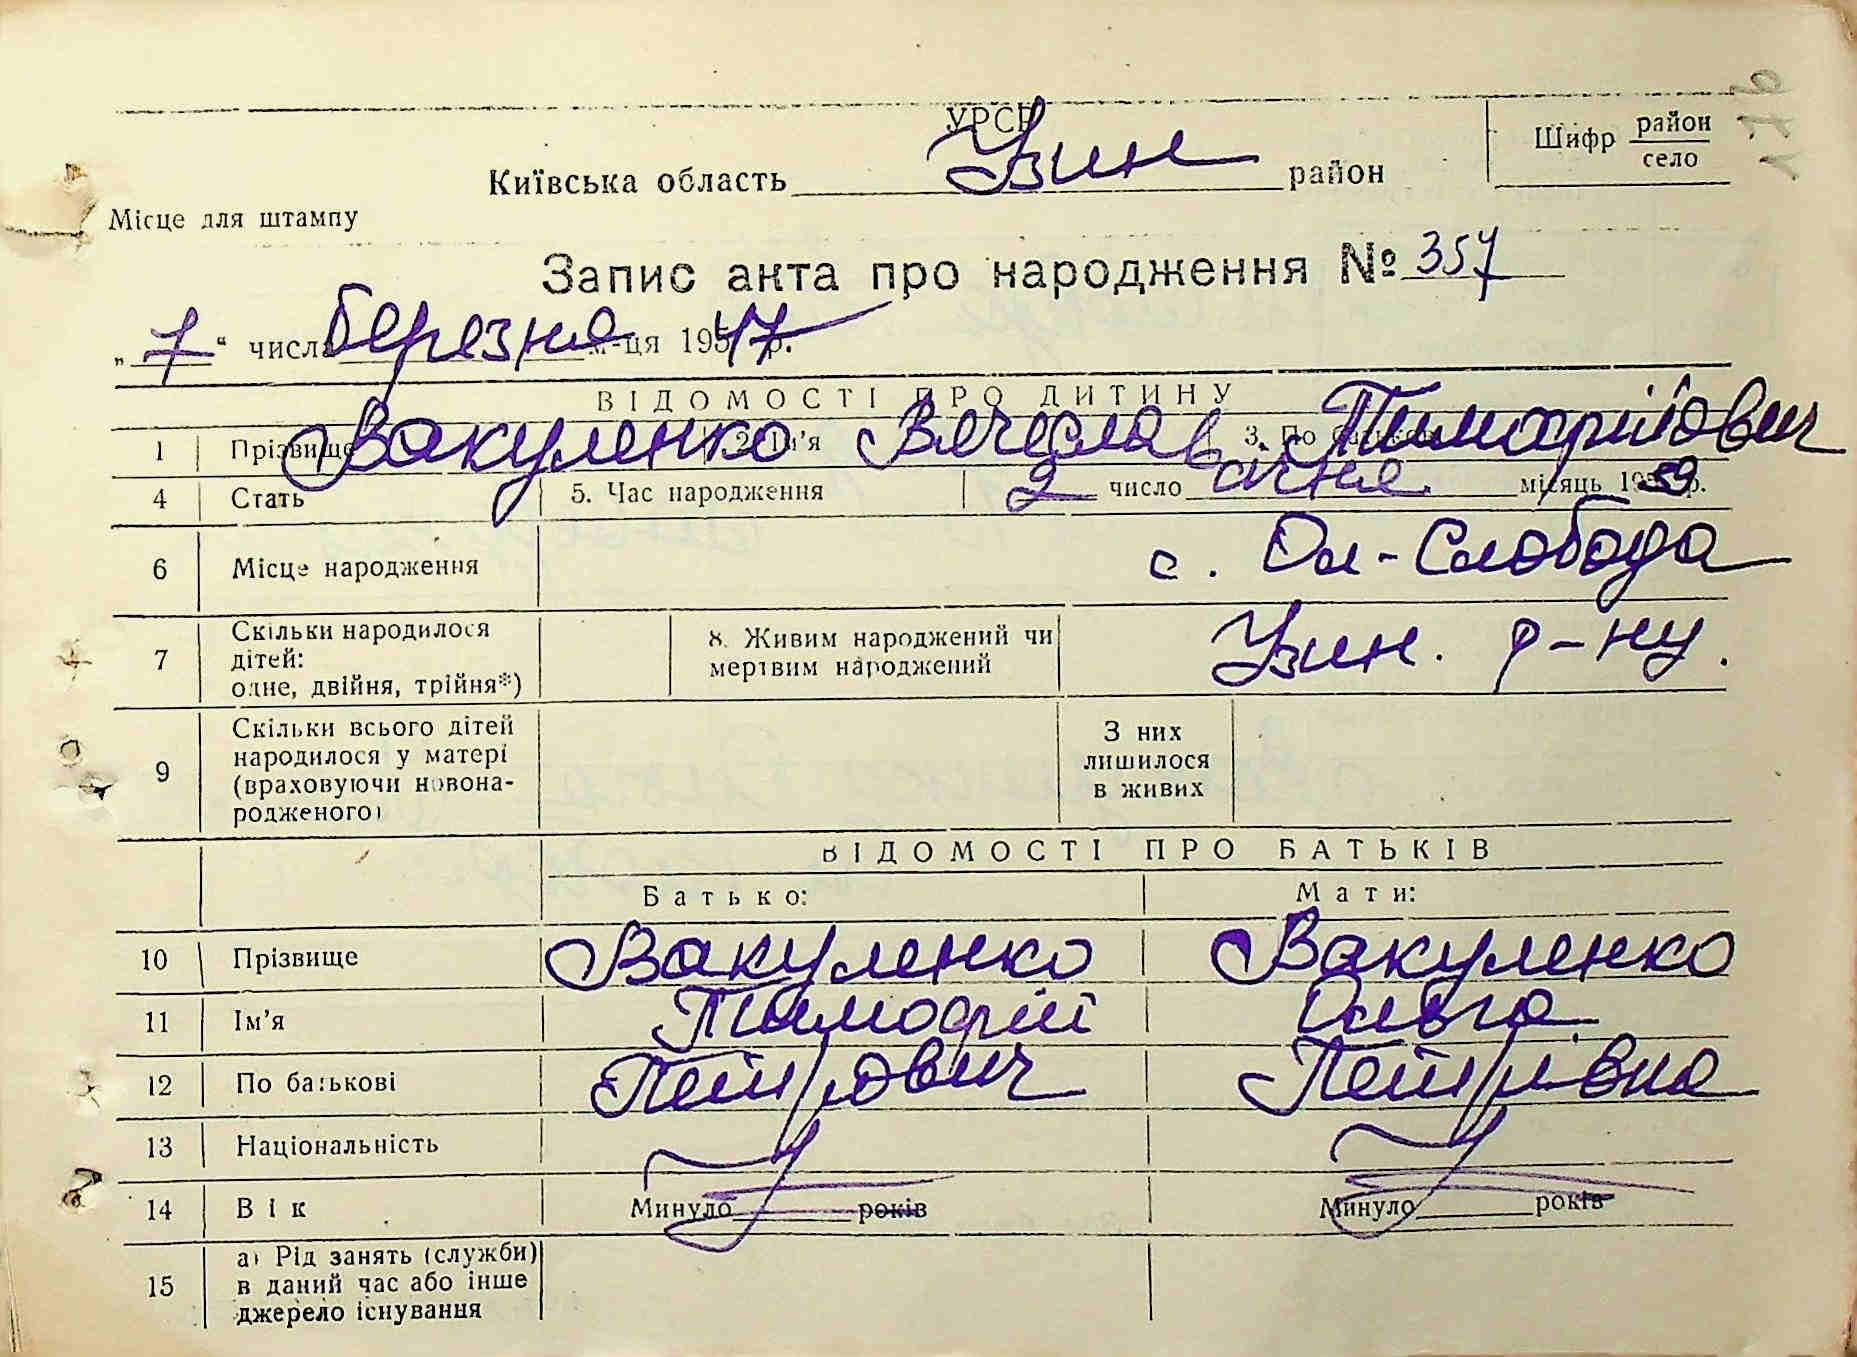 УРСР
Київська область Узин район
Шифр район
село
Місце для штампу
Запис акта про народження № 357
„7“ числа березня м-ця 1947 р.
ВІДОМОСТІ ПРО ДИТИНУ
1 Прізвище Вакуленко 2. Ім’я Вячеслав 3. По батькові Тимофійович
4 Стать 5. Час народження 2 число січня місяць р.
6 Місце народження с. Ол-Слобода
7 Скільки народилося дітей: одне, двійня, трійня*) 8. Живим народжений чи мертвим народжений Узин. р-ну.
9 Скільки всього дітей народилося у матері (враховуючи новона-родженого) З них лишилося в живих
ВІДОМОСТІ ПРО БАТЬКІВ
Батько: Мати:
10 Прізвище Вакуленко Вакуленко
11 Ім’я Тимофій Ольга
12 По батькові Петрович Петрівна
13 Національність У У
14 Вік Минуло років Минуло років
15 а) Рід занять (служби) в даний час або інше джерело існування